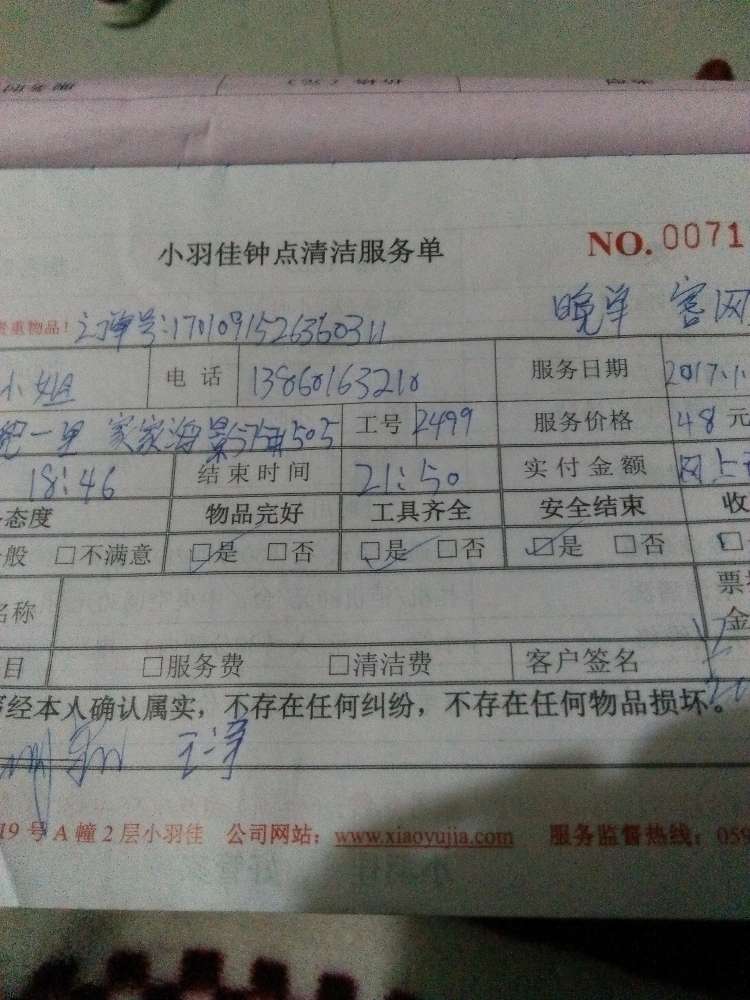 小羽佳钟点清洁服务单 NO. 0071
贵重物品！ 订单号:170109152636031 晚单 客网
小姐 电话 13860163210 服务日期 2017.1.
跑一里 家家海景 505 工号 2499 服务价格 48元
18:46 结束时间 21:50 实付金额 网上
态度 物品完好 工具齐全 安全结束 收
般 □不满意 ☑是 □否 ☑是 □否 ☑是 □否 □
名称 票 金
目 □服务费 □清洁费 客户签名
经本人确认属实，不存在任何纠纷，不存在任何物品损坏。
19号A幢2层小羽佳 公司网站：www.xiaoyujia.com 服务监督热线：059